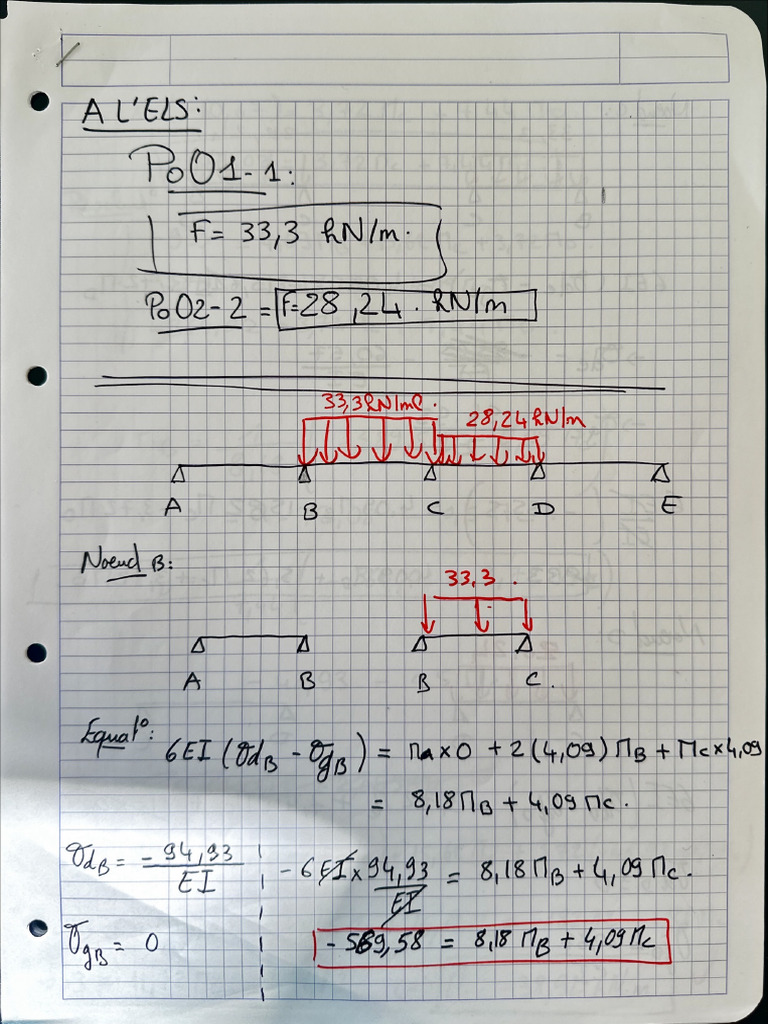 A L'ELS:
P001-1:
F= 33,3 kN/m.
P002-2 = F=28,24. kN/m
33,3kN/ml.
28,24 kN/m
A B C D E
Noeud B:
33,3.
A B B C.
Equat°: 6EI (σdB - σgB) = Ma×0 + 2(4,09) MB + Mc×4,09
= 8,18 MB + 4,09 Mc.
σdB = - 94,93/EI
- 6EI × 94,93/EI = 8,18 MB + 4,09 Mc.
σgB = 0
- 569,58 = 8,18 MB + 4,09 Mc